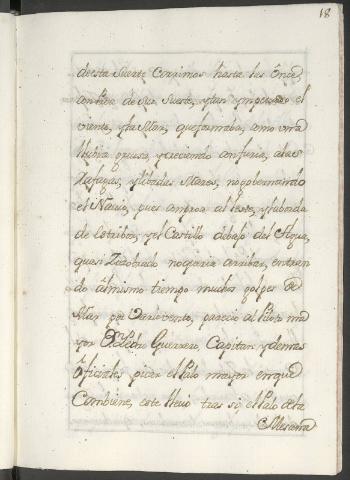 18
de esta Suerte Corrimos hasta las Once,
con fuerza de Sur Sueste, y tan impetuoso el
viento, y la Mar, que formaba, como una
lluvia gruesa, y creciendo con furia, a las
Rafagas, y elevados Mares, no gobernando
el Navio, pues con proa al Leste, y la borda
de estribor, y el Castillo debajo del Agua,
quasi Zozobrado no queria arribar, entran
do al mismo tiempo muchos golpes de
Mar por Varlovento, parecio al Piloto ma
yor Dn. Pedro Guerrero Capitan y demas
oficiales picar el Palo mayor en que
Combiene, este llevo tras si el Palo de la
Mesana